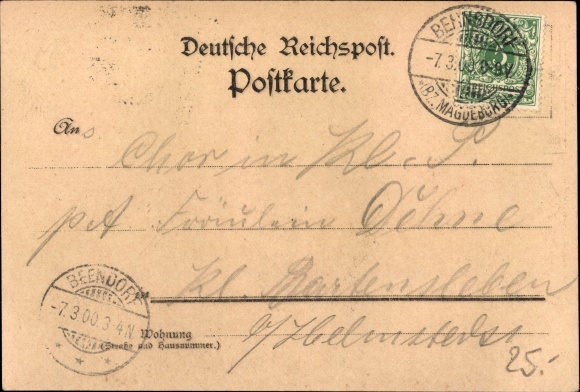 Deutsche Reichspost.
Postkarte.
BEHNSDORF
-7.3.00 8-9V
(BZ. MAGDEBURG)
Ans
Chor in Kl. S.
p A Fräulein Döhne
Kl. Bartensleben
b/Helmstedt
BEENDORF
-7.3.00 3-4N
Wohnung
(Straße und Hausnummer.)
25.-